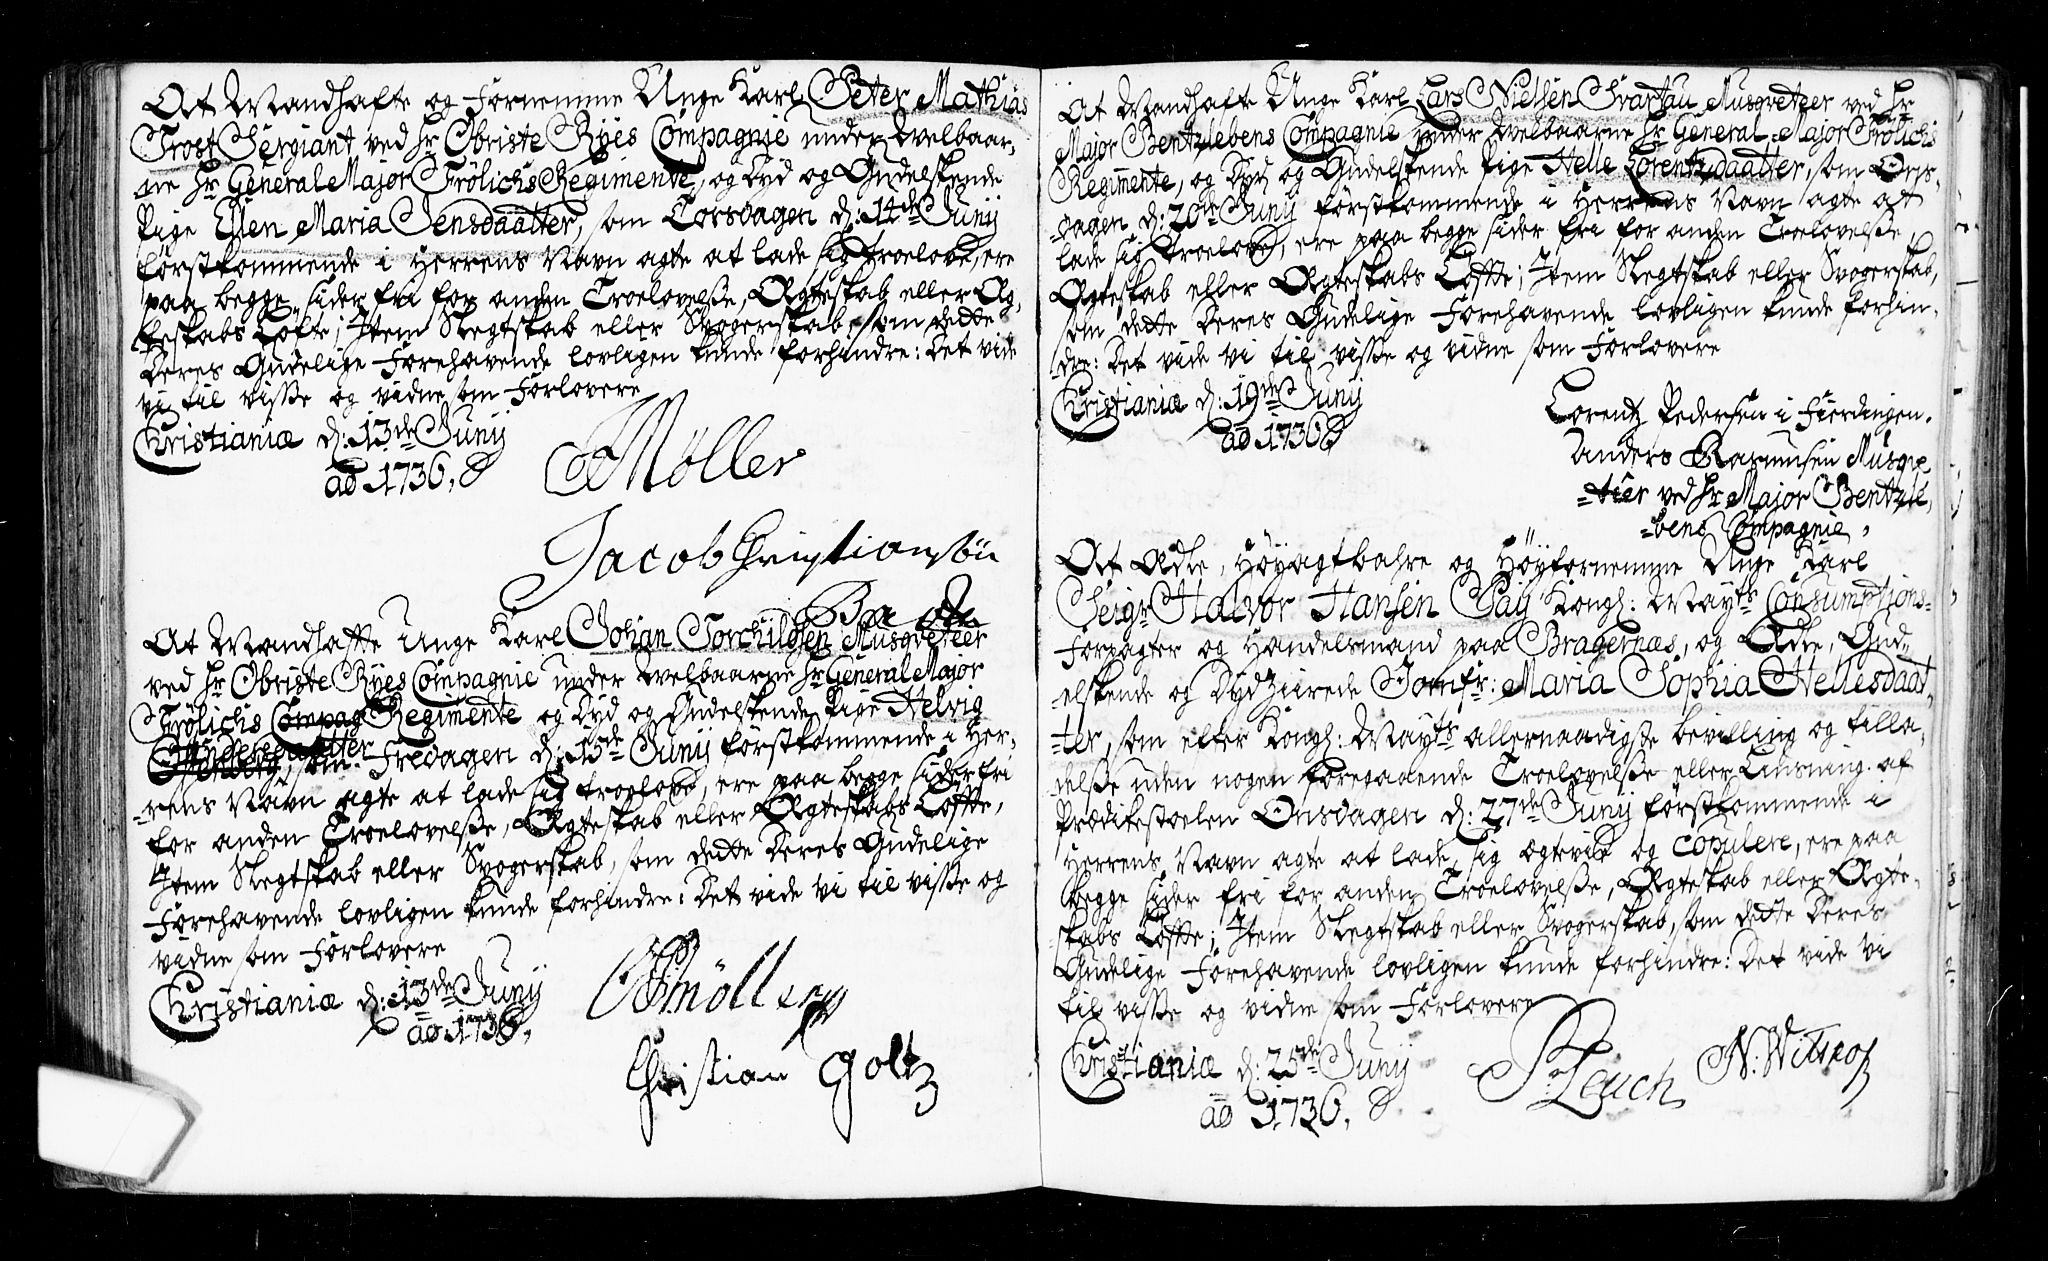 At Mandhafte og fornemme Unge Karl Peter Mathias
Trost Sergiant ved Hr Obriste Ryes Compagnie under Welbaar,
ne Hr General Major Frölichs Regimente, og Dyd og Gudelskende
Pige Ellen Maria Jensdaatter, som Torsdagen d: 14de Junij
förstkommende i Herrens Navn agte at lade sig troelove, ere
paa begge sider fri for anden Troelovelße, Ægteskab eller Æg,
teskabs Löfte; Item Slegtskab eller Svogerskab, som dette
Deres Gudelige Forehavende lovligen kunde forhindre: Det vide
vi til visße og vidne som Forlovere
Christianiæ d: 13de Junij
ao 1736,
Möller
Jacob Christiansön
At Mandhafte Unge Karl Johan Torchildsen Musqveteer
ved Hr Obriste Ryes Compagnie under Welbaarne Hr General Major
Frölichs Compag Regimente og Dyd og Gudelskende Pige Helvig
Andersdaatter
som Fredagen d: 15de Junij förstkommende i Her,
rens Navn agte at lade sig troelove, ere paa begge sider fri
for anden Troelovelße, Ægteskab eller Ægteskabs Löfte,
Item Slegtskab eller Svogerskab, som dette Deres Gudelige
Forehavende lovligen kunde forhindre: Det vide vi til visße og
vidne som Forlovere
Christianiæ d: 13de Junij
ao 1736,
Möller
Christian Goltz
At Mandhafte Unge Karl Lars Nielsen Svartau Musqveteer ved Hr
Major Bentzlebens Compagnie under Welbaarne Hr General-Major Frölichs
Regimente, og Dyd og Gudelskende Pige Helle Lorentzdaatter, som Ons,
dagen d: 20de Junij förstkommende i Herrens Navn agte at
lade sig troelove, ere paa begge sider fri for anden Troelovelße,
Ægteskab eller Ægteskabs Löfte; Item Slegtskab eller Svogerskab,
som dette Deres Gudelige Forehavende lovligen kunde forhin,
dre: Det vide vi til visße og vidne som Forlovere
Christianiæ d: 19de Junij
ao 1736
Lorentz Pedersen i Fierdingen.
Anders Rasmusen Musqve
tier ved Hr Major Bentzle,
bens Compagnie,
At Ædle, Höyagtbahre og Höyfornemme Unge Karl
Seigr Halvor Hansen Pay Kongl: Mayts Consumptions=
Forpagter og Handelsmand paa Bragernæs, og Ædle, Gud,
elskende og Dydziirede Jomfr: Maria Sophia Hellesdaat,
ter, som efter Kongl: Mayts allernaadigste bevilling og tilla,
delße uden nogen foregaaende Troelovelße eller Liusning af
Prædikestoelen Onsdagen d: 27de Junij förstkommende i
Herrens Navn agte at lade sig ægtevie og copulere, ere paa
begge sider fri for anden Troelovelße, Ægteskab eller Ægte,
skabs Löfte; Item Slegtskab eller Svogerskab, som dette Deres
Gudelige Forehavende lovligen kunde forhindre: Det vide vi
til visße og vidne som Forlovere
Christianiæ d: 25de Junij
ao 1736,
P: Leuch N: Witskof